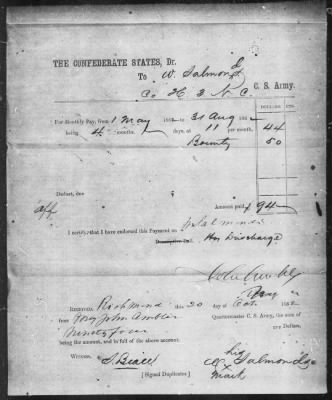 THE CONFEDERATE STATES, Dr.
To W. Salmond
Co H 3 N C. C. S. Army.
DOLLARS CTS.
For Monthly Pay, from 1 May 1862 to 31 Aug 186
being 4 months, days, at 11 per month, 44
Bounty 50
Deduct, due
Amount paid $ 94
I certify that I have endorsed this Payment on Salmonds
Descriptive Roll. His Discharge
RECEIVED, Richmond this 20 day of Oct 1862
from Major John Ambler Quartermaster C. S. Army, the sum of
Ninety four Dollars,
being the amount, and in full of the above account.
Witness
[Signed Duplicates.]
his
W. X Salmond
mark